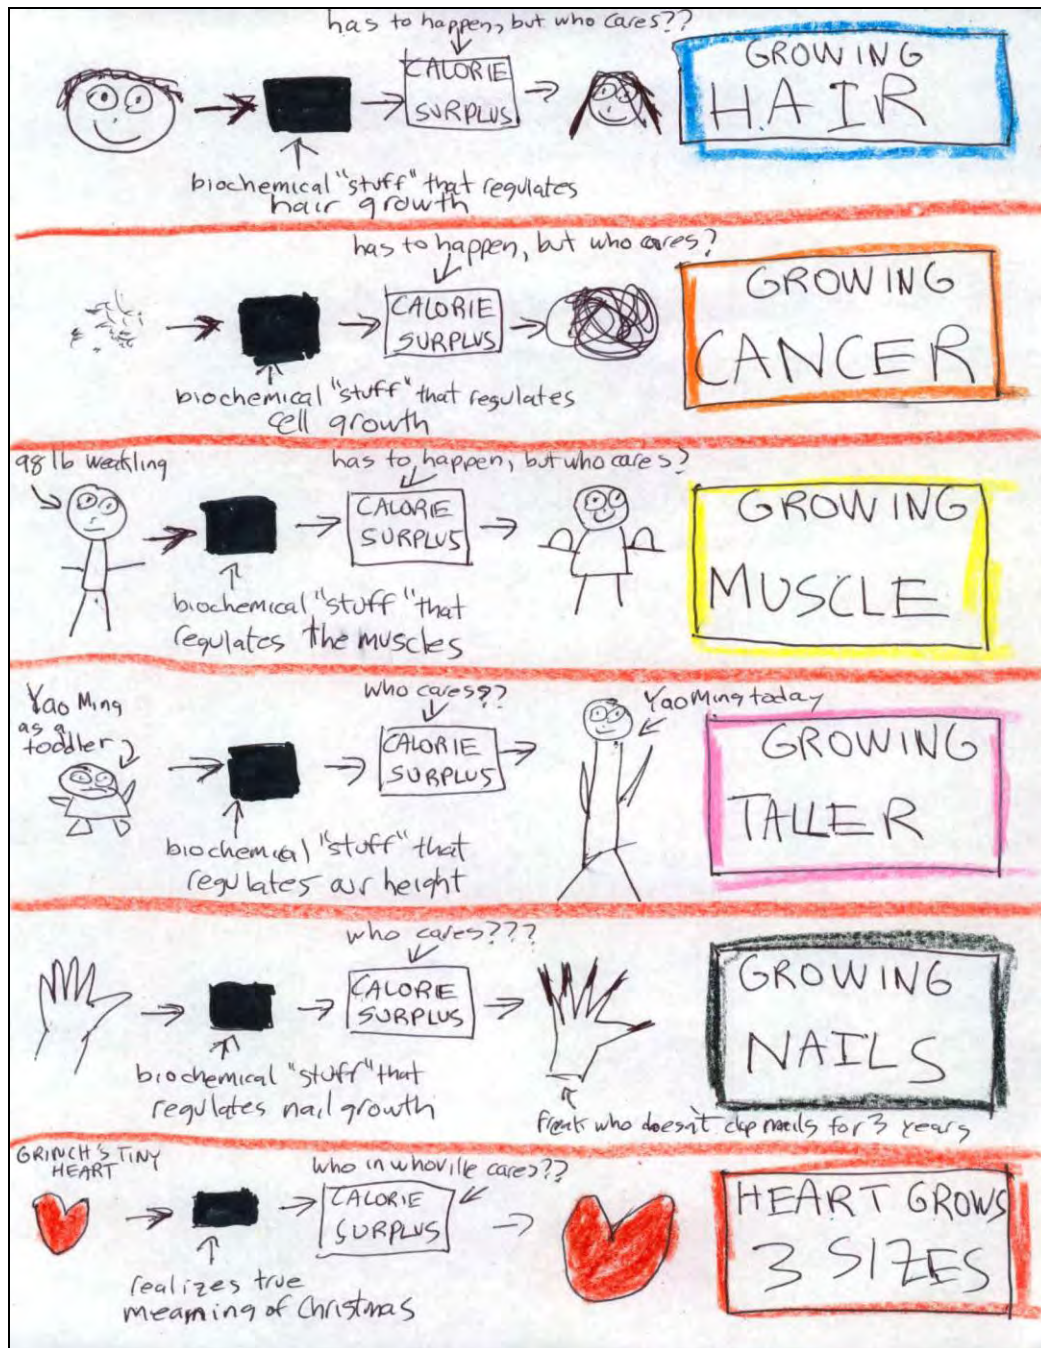 has to happen, but who cares??
CALORIE
SURPLUS
GROWING
HAIR
biochemical "stuff" that regulates
hair growth
has to happen, but who cares?
CALORIE
SURPLUS
GROWING
CANCER
biochemical "stuff" that regulates
cell growth
98 lb weakling
has to happen, but who cares?
CALORIE
SURPLUS
GROWING
MUSCLE
biochemical "stuff" that
regulates the muscles
Yao Ming
as a
toddler
who cares??
CALORIE
SURPLUS
Yao Ming today
GROWING
TALLER
biochemical "stuff" that
regulates our height
who cares???
CALORIE
SURPLUS
GROWING
NAILS
biochemical "stuff" that
regulates nail growth
freak who doesn't clip nails for 3 years
GRINCH'S TINY
HEART
who in whoville cares??
CALORIE
SURPLUS
HEART GROWS
3 SIZES
realizes true
meaning of Christmas